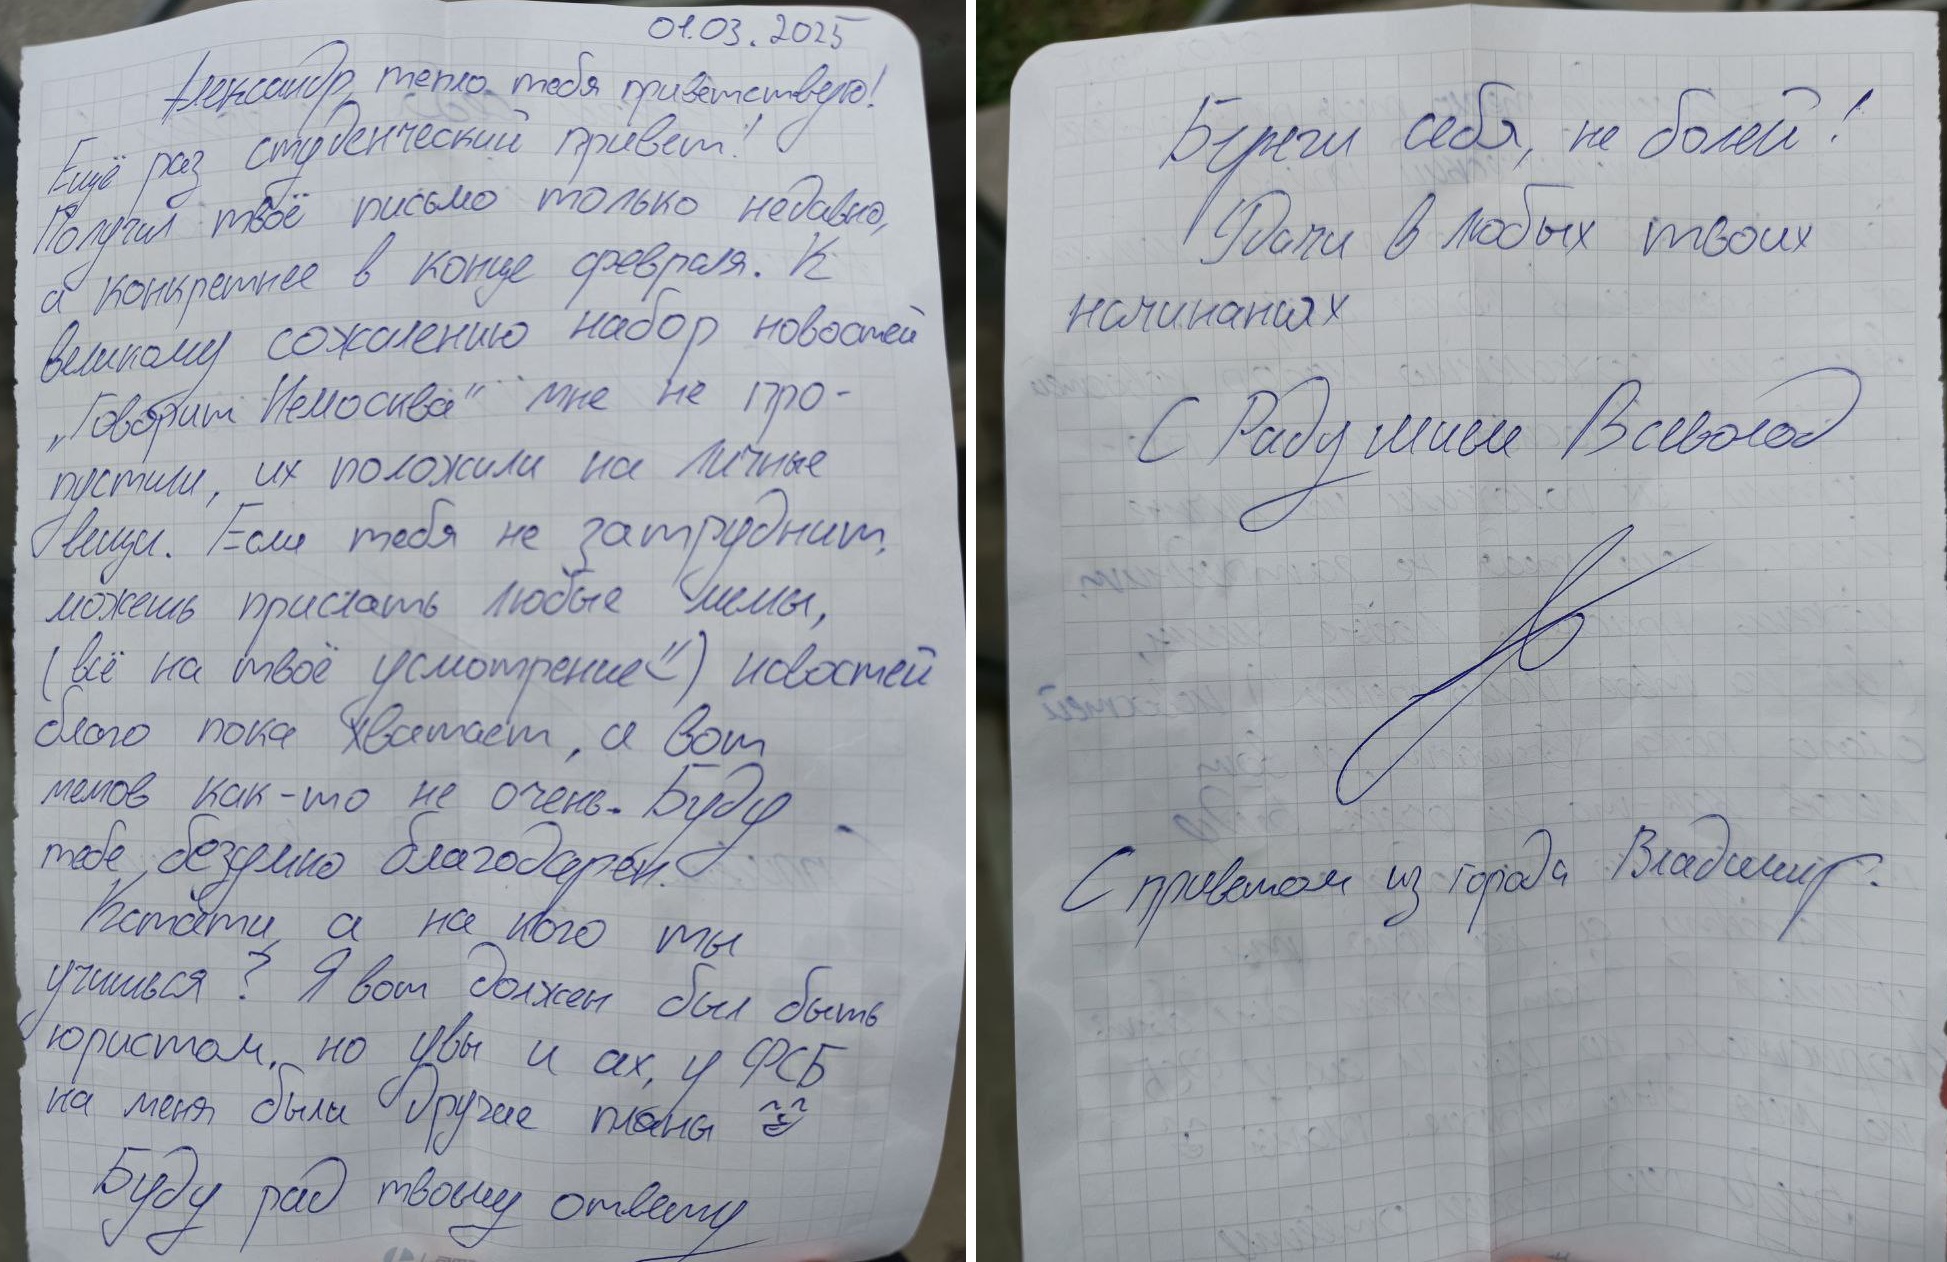 01.03.2025
Александр, тепло тебя приветствую!
Ещё раз студенческий привет!
Получил твоё письмо только недавно,
а конкретнее в конце февраля. К
великому сожалению набор новостей
„Говорит Немосква" мне не про-
пустили, их положили на личные
вещи. Если тебя не затруднит,
можешь прислать любые мемы,
(всё на твоё усмотрение) новостей
благо пока хватает, а вот
мемов как-то не очень. Буду
тебе безумно благодарен.
Кстати, а на кого ты
учишься? Я вот должен был быть
юристом, но увы и ах, у ФСБ
на меня были другие планы
Буду рад твоему ответу
Береги себя, не болей!
Удачи в любых твоих
начинаниях
С Радушием Всеволод
С приветом из города Владимир.